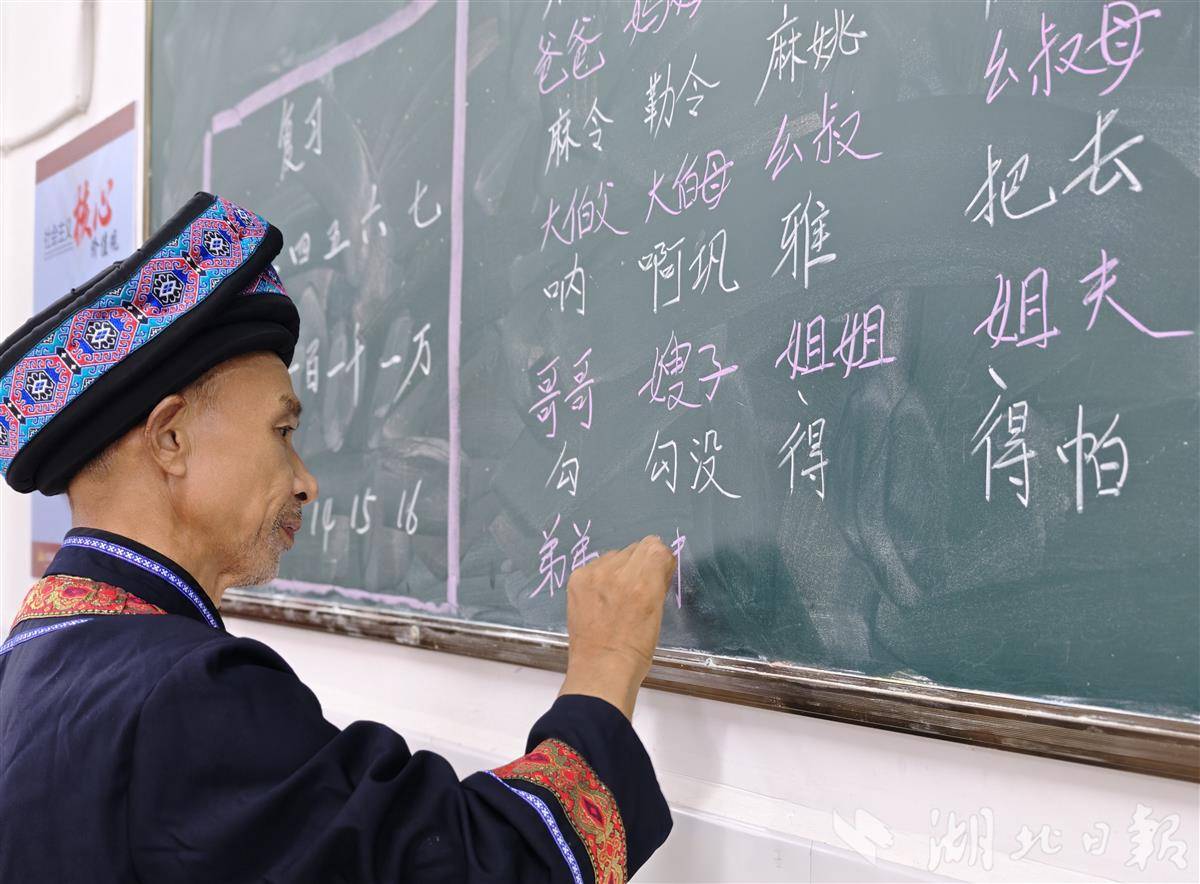 社会主义
核心
价值观
复习
四 五 六 七
百 一千 一万
14 15 16
爸爸 妈妈 麻姚 幺叔母
麻令 勒令 幺叔 把 去
大伯父 大伯母 雅 姐 夫
呐 啊巩 姐姐 得 怕
哥哥 嫂子 得
勾 勾没
弟弟
湖北日报